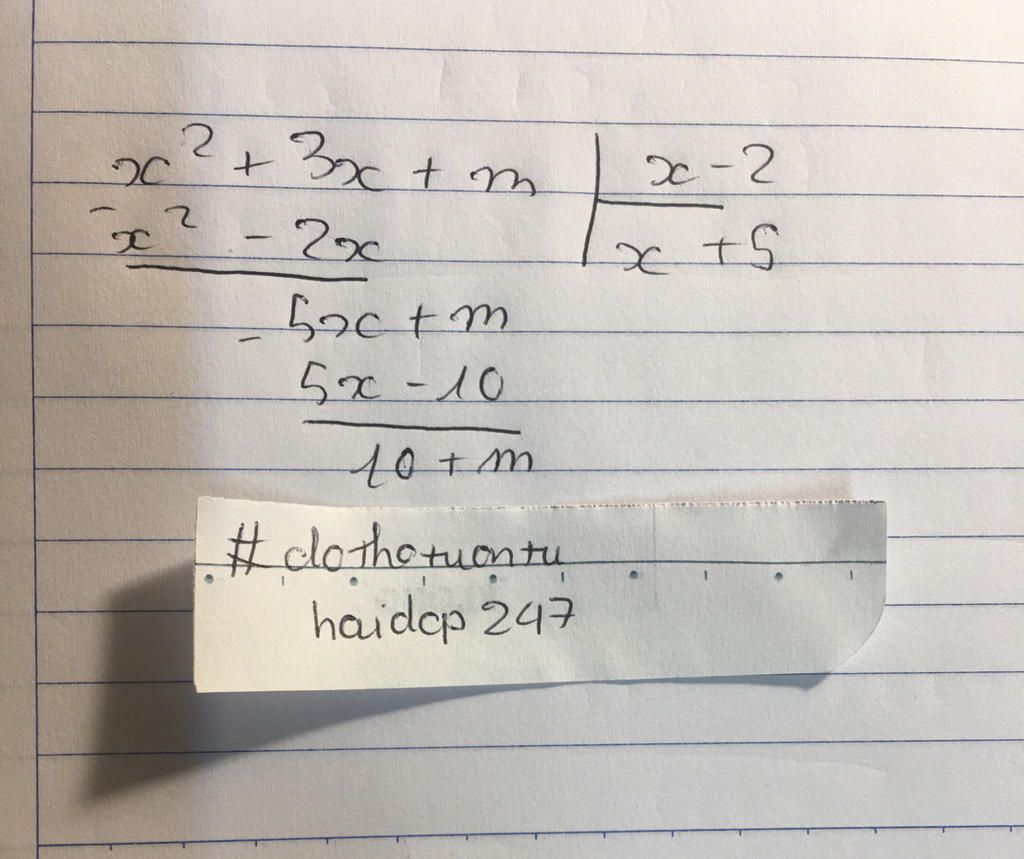 x² + 3x + m | x - 2
- x² - 2x | x + 5
- 5x + m
5x - 10
10 + m
# clothotuontu
haidcp 247